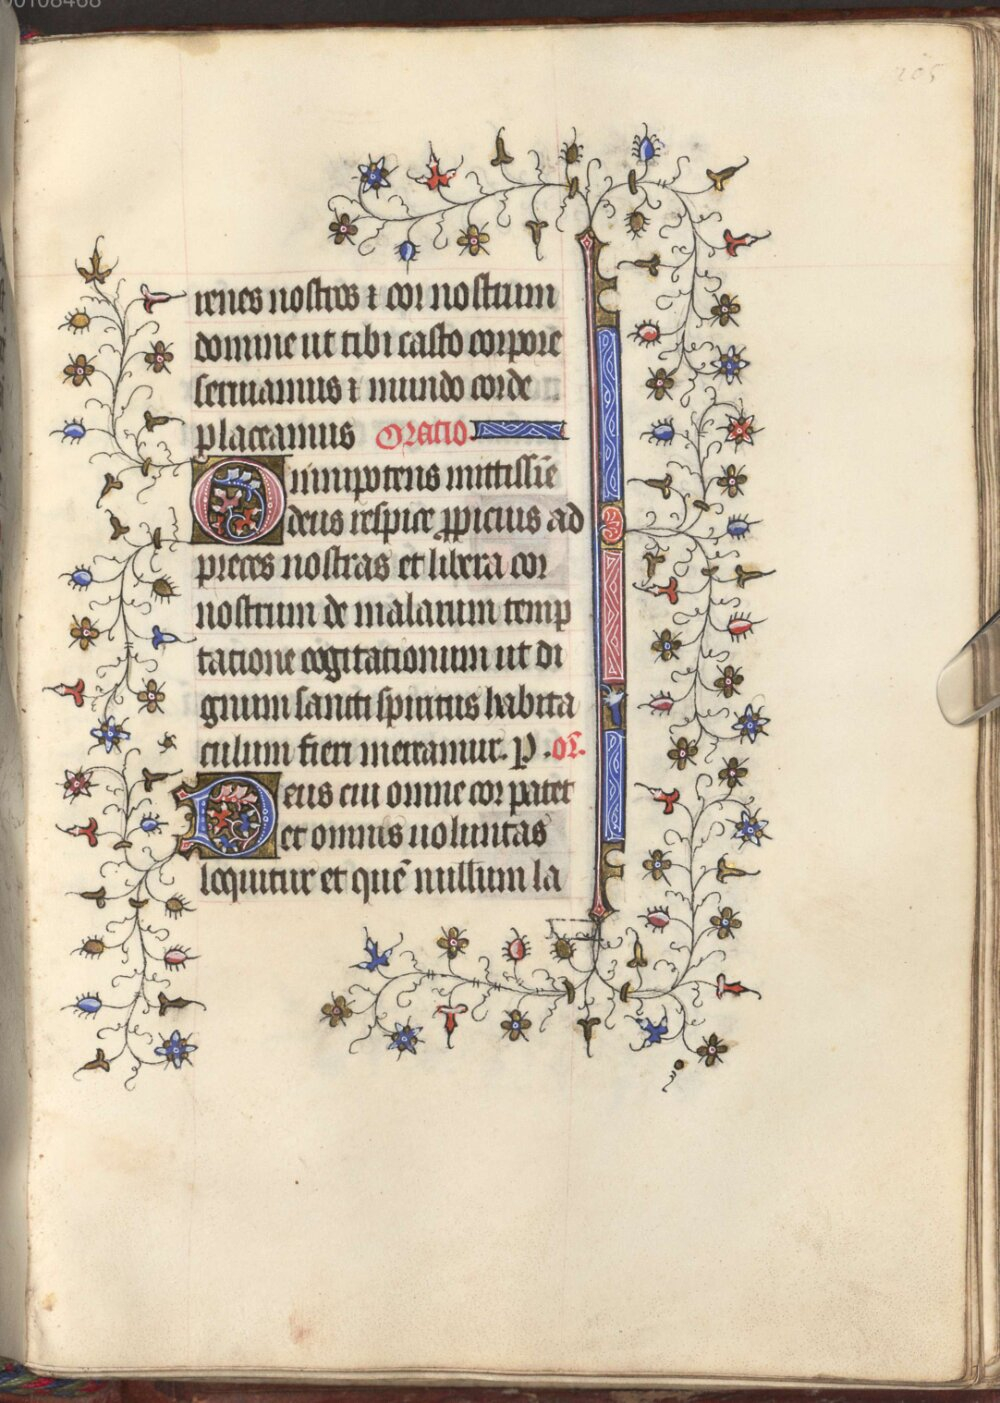 00108468
205
renes nostros ⁊ cor nostrum
domine ut tibi casto corpore
seruiamus ⁊ mundo corde
placeamus Oratio
Omnipotens mittissīe
deus respice ꝓpicius ad
preces nostras et libera cor
nostrum de malarum temp
tatione cogitationum ut di
gnum sancti spiritus habita
culum fieri mereamur. P. or.
Deus cui omne cor patet
et omnis uoluntas
loquitur et quē nullum la